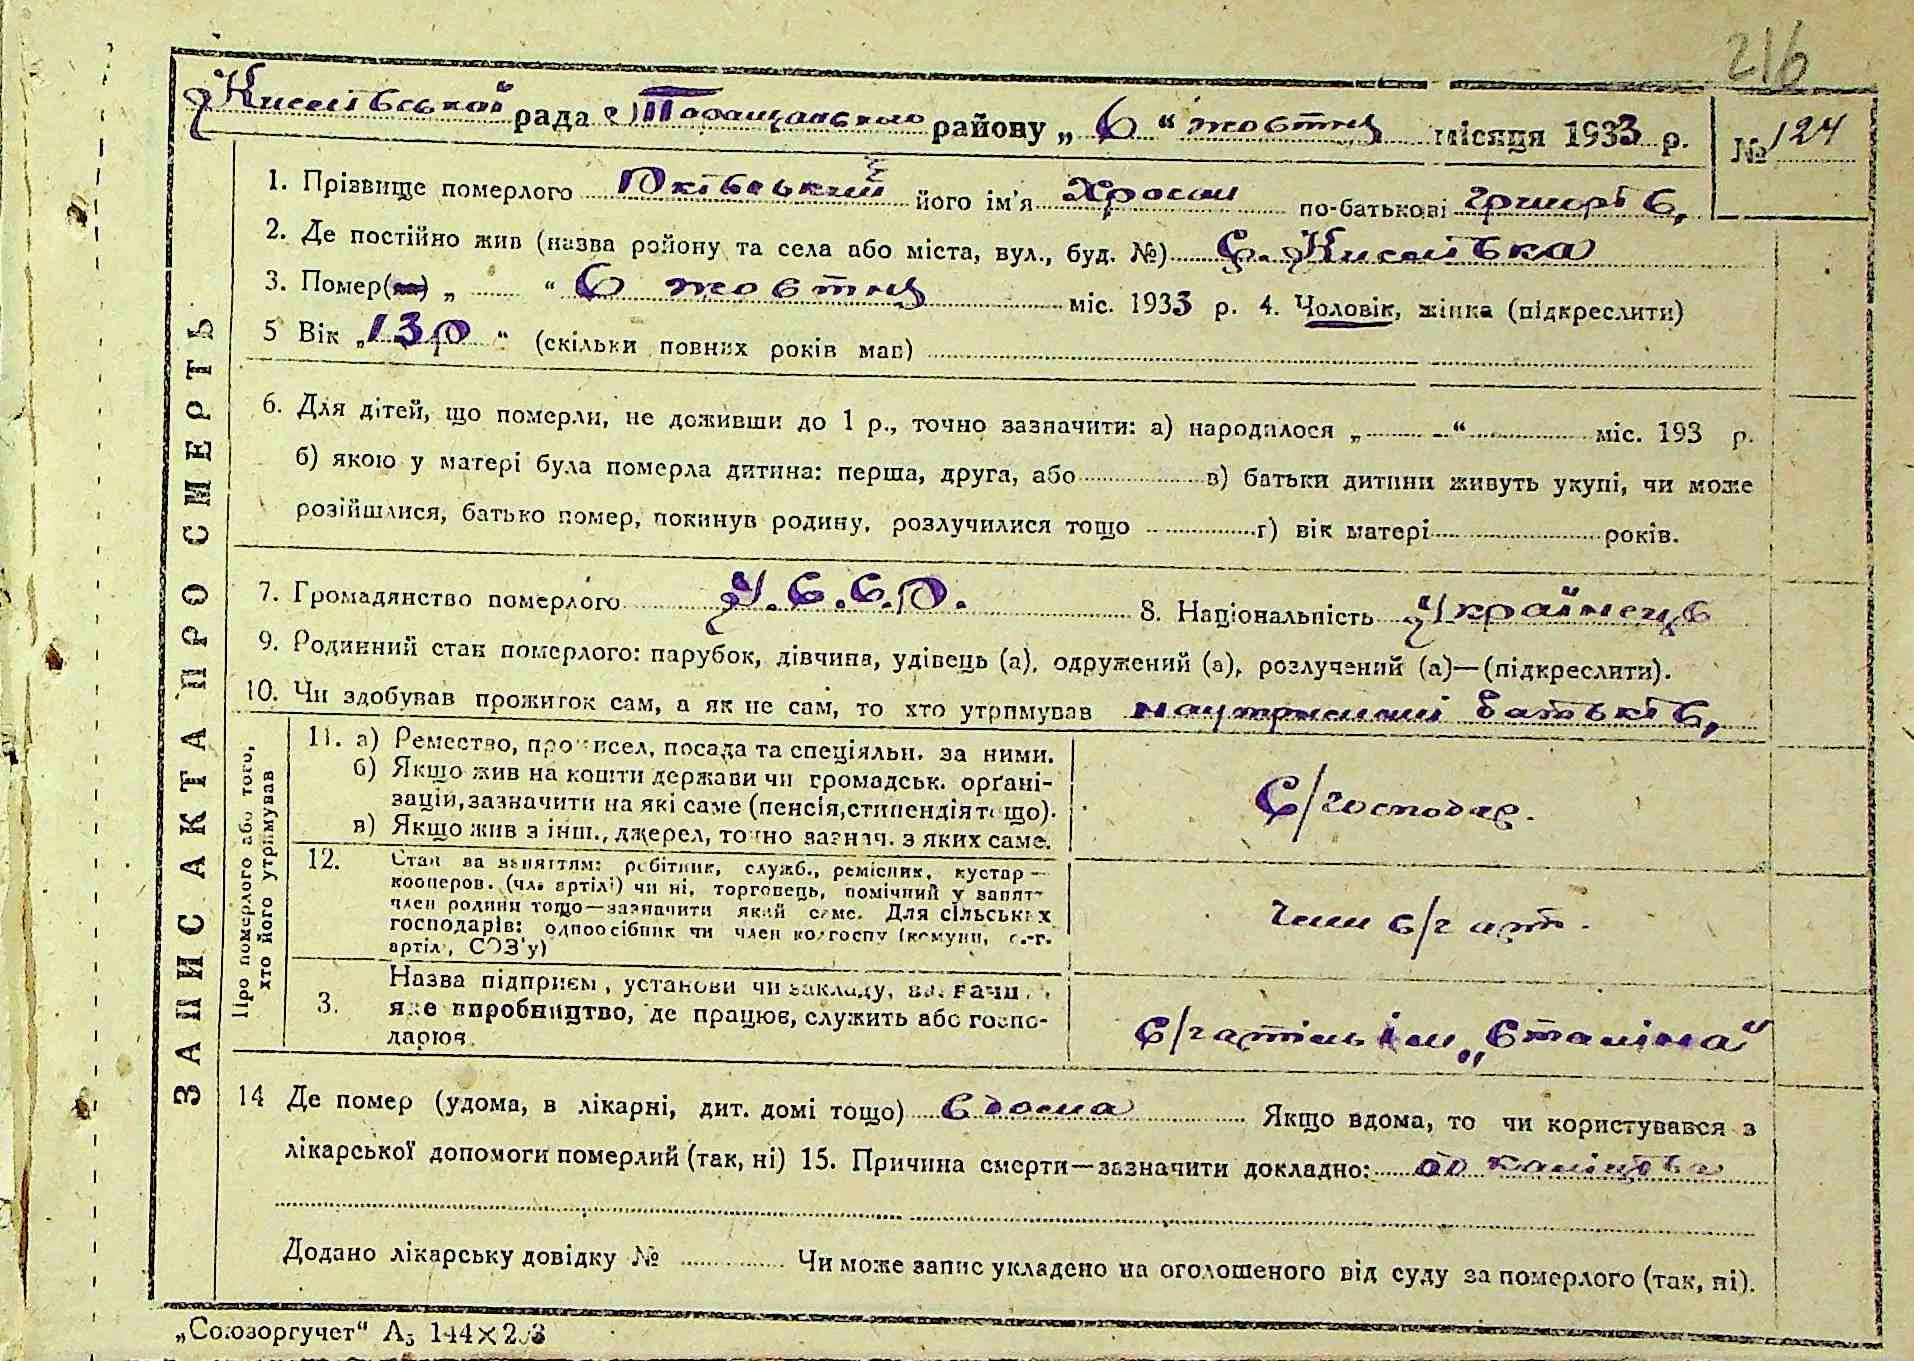 216
Кислівської рада Таращанського району „ 6 “ жовтня місяця 1933 р. № 124
1. Прізвище померлого його ім'я по-батькові Григорів.
2. Де постійно жив (назва району та села або міста, вул., буд. №) С. Кислівка
3. Помер(ла) „ “ 6 жовтня міс. 1933 р. 4. Чоловік, жінка (підкреслити)
5 Вік „13р“ (скільки повних років мав)
6. Для дітей, що померли, не доживши до 1 р., точно зазначити: а) народилося „ “ міс. 193 р.
б) якою у матері була померла дитина: перша, друга, або в) батьки дитини живуть укупі, чи може
розійшлися, батько помер, покинув родину, розлучилися тощо г) вік матері років.
7. Громадянство померлого У.С.С.Р. 8. Національність Українець
9. Родинний стан померлого: парубок, дівчина, удівець (а), одружений (а), розлучений (а)—(підкреслити).
10. Чи здобував прожиток сам, а як не сам, то хто утримував батьків,
ЗАПИС АКТА ПРО СМЕРТЬ
Про померлого або того,
хто його утримував
11. а) Ремество, промисел, посада та спеціяльн. за ними.
б) Якщо жив на кошти держави чи громадськ. орґані-
зацій, зазначити на які саме (пенсія, стипендія тощо).
в) Якщо жив з інш., джерел, точно зазнач. з яких саме.
С/господар.
12. Стан за заняттям: робітник, служб., ремісник, кустар—
кооперов. (чл. артілі) чи ні, торговець, помічний у занят-
член родини тощо—зазначити який саме. Для сільських
господарів: одноосібник чи член колгоспу (комуни, с.-г.
артіл, СОЗ'у)
член с/г арт.
3. Назва підприєм, установи чи закладу,
яке виробництво, де працює, служить або госпо-
дарює.
С/г артіль ім „Сталіна“
14 Де помер (удома, в лікарні, дит. домі тощо) вдома Якщо вдома, то чи користувався з
лікарської допомоги померлий (так, ні) 15. Причина смерти—зазначити докладно:
Додано лікарську довідку № Чи може запис укладено на оголошеного від суду за померлого (так, ні).
„Союзоргучет“ А5 144×203